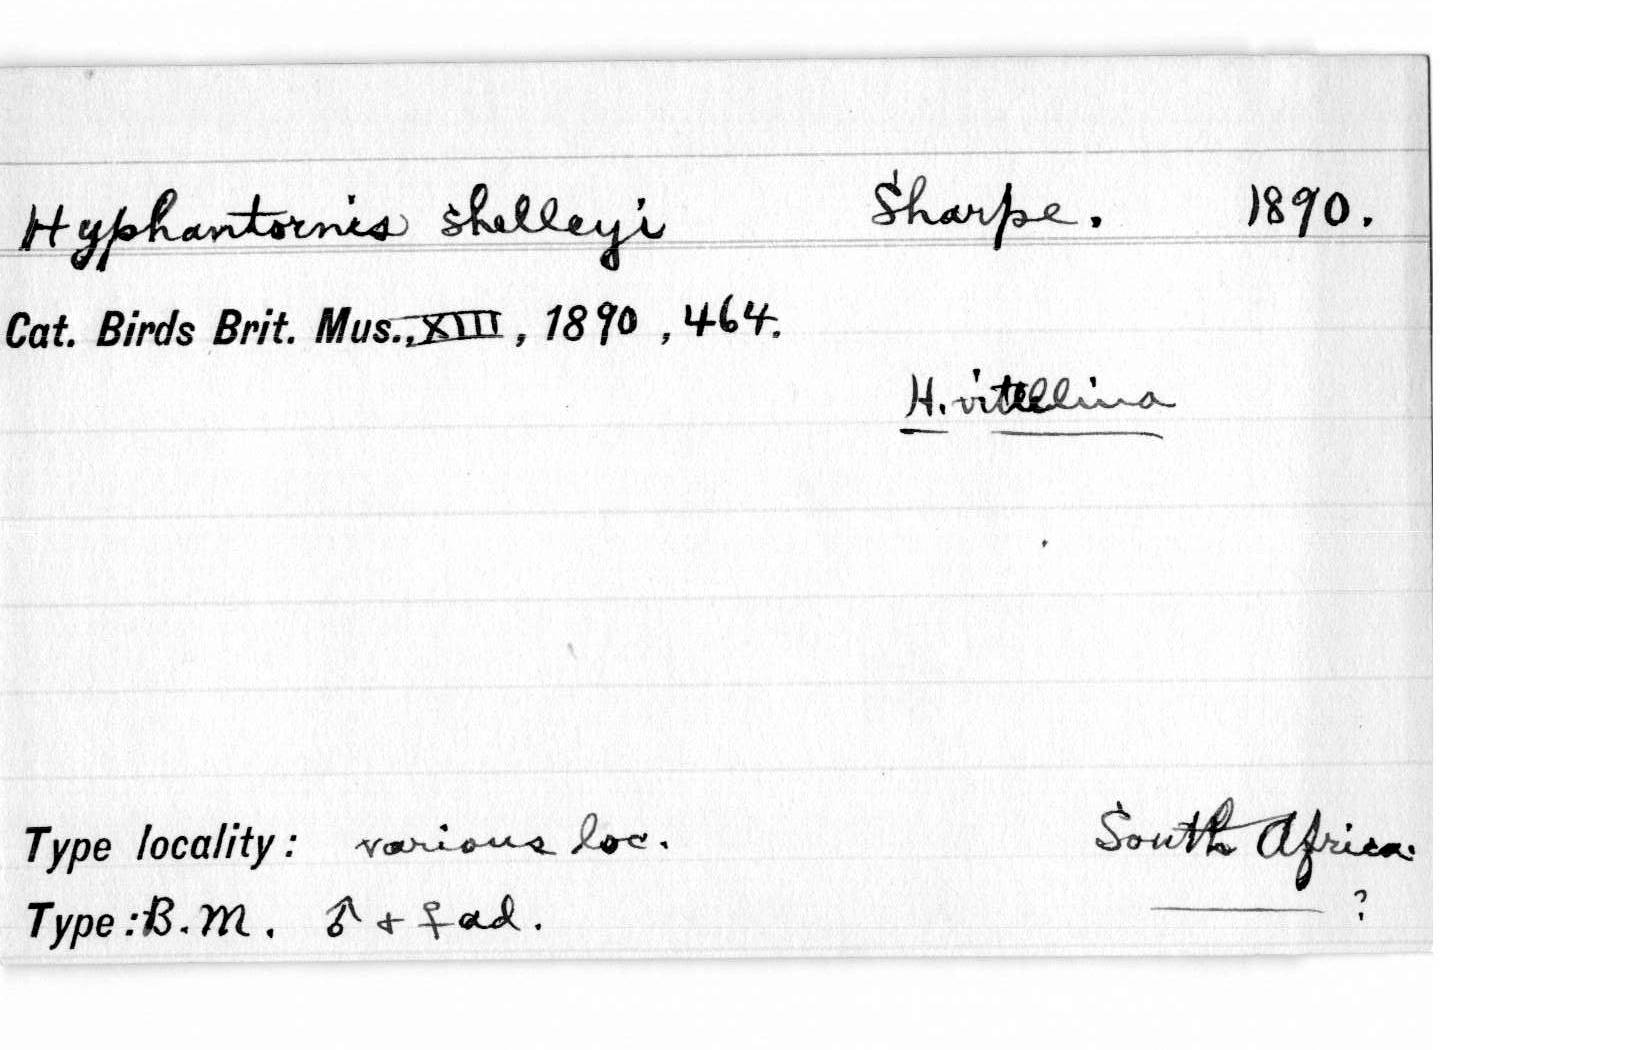 Hyphantornis shelleyi Sharpe. 1890.
Cat. Birds Brit. Mus., XIII, 1890, 464.
H. vitellina
Type locality: various loc. South Africa.
Type: B.M. ♂ + ♀ ad. ?